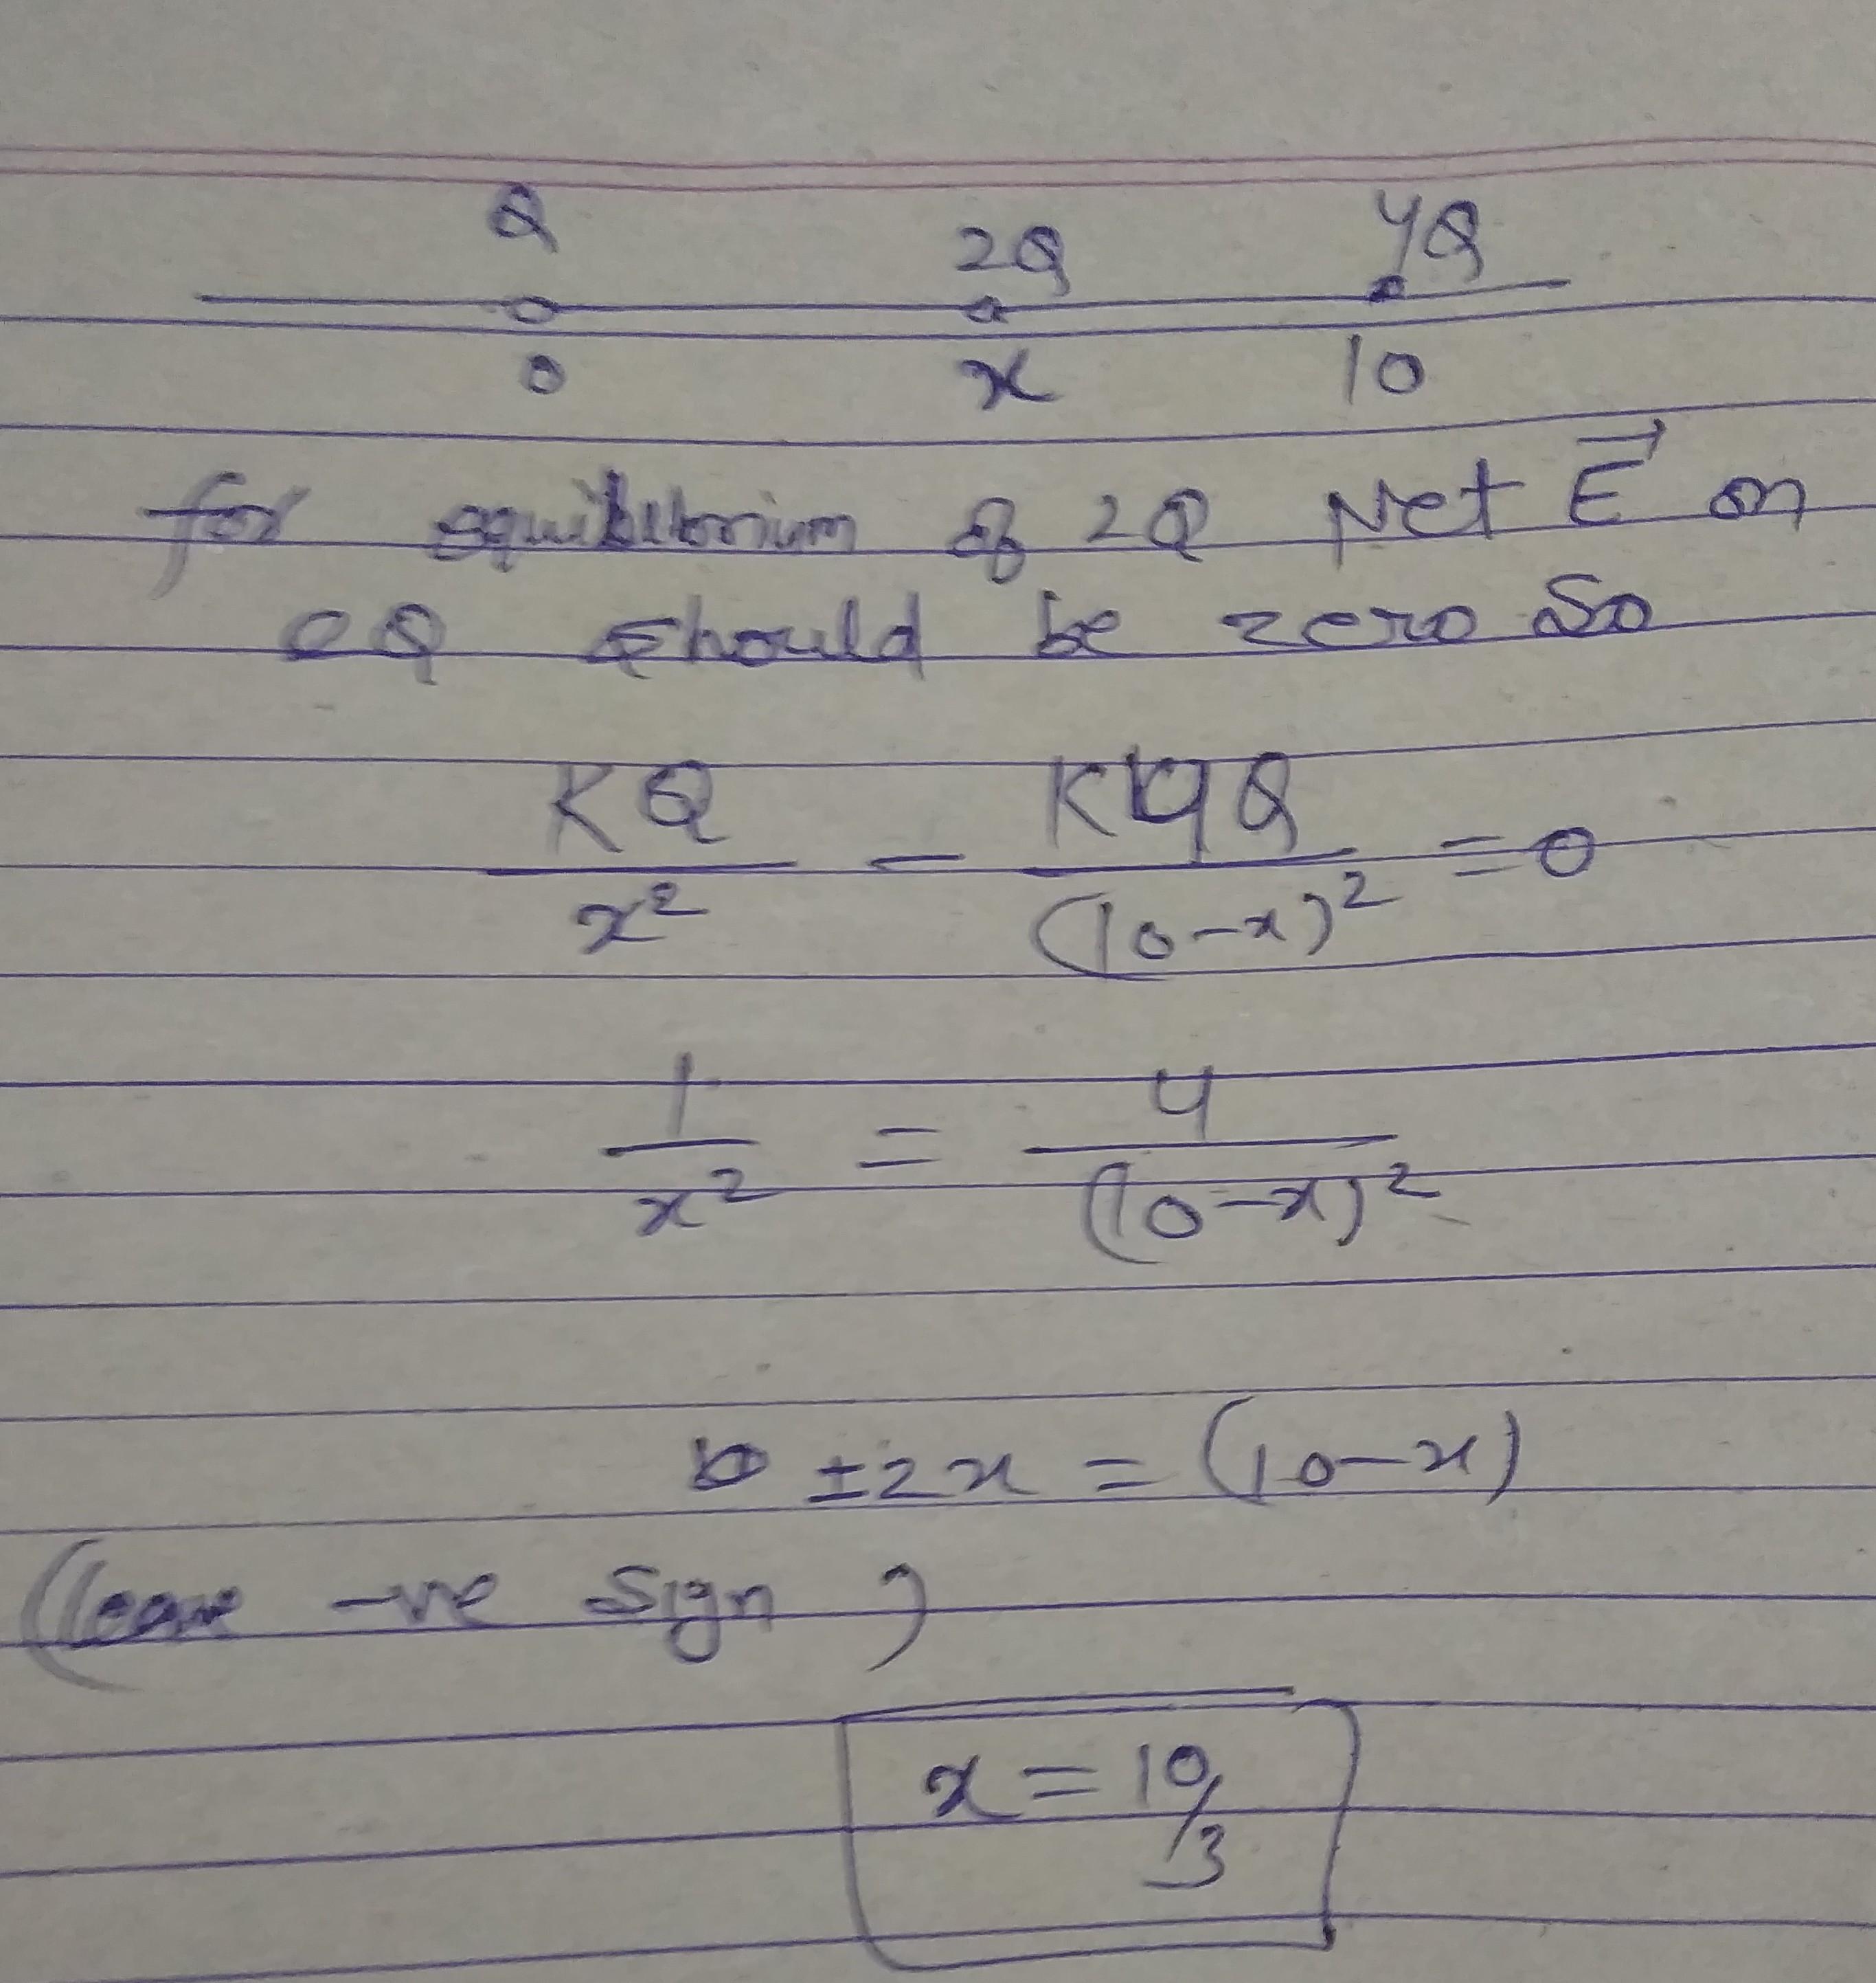 Q 2Q 4Q
0 x 10
for equilibrium of 2Q Net E⃗ on
2Q should be zero So
KQ/x² - K4Q/(10-x)² = 0
1/x² = 4/(10-x)²
±2x = (10-x)
(leave -ve Sign)
x = 10/3